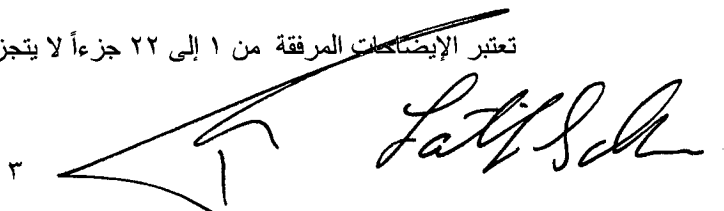 تعتبر الإيضاحات المرفقة من ١ إلى ٢٢ جزءاً لا يتجز
٣